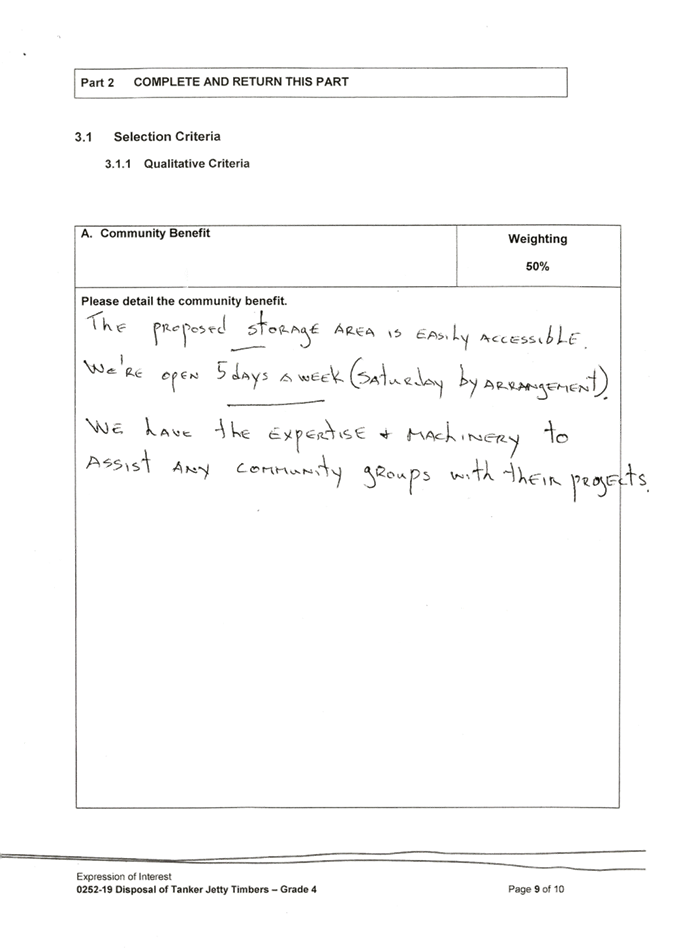 Part 2 COMPLETE AND RETURN THIS PART
3.1 Selection Criteria
3.1.1 Qualitative Criteria
A. Community Benefit
Weighting
50%
Please detail the community benefit.
The proposed storage area is easily accessible.
We're open 5 days a week (Saturday by arrangement).
We have the expertise + machinery to
assist any community groups with their projects.
Expression of Interest
0252-19 Disposal of Tanker Jetty Timbers – Grade 4
Page 9 of 10